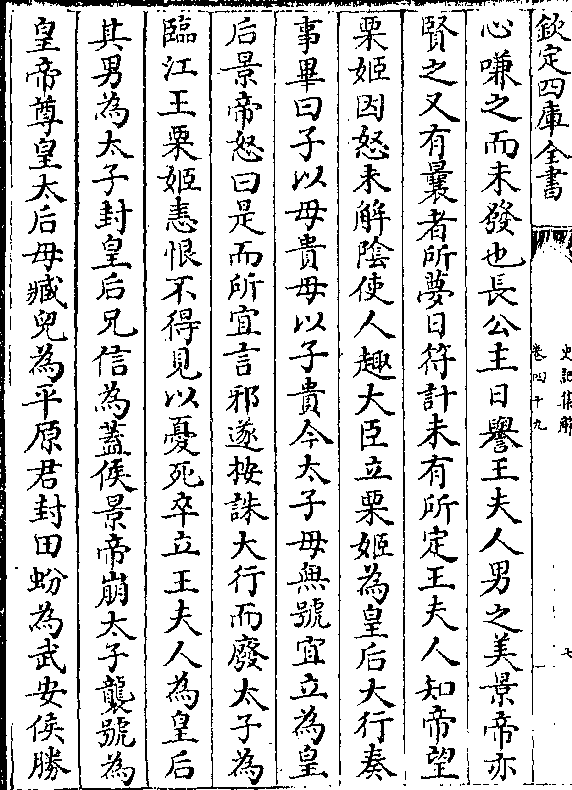 欽定四庫全書
史記集解
卷四十九
七
心嗛之而未發也長公主日譽王夫人男之美景帝亦
賢之又有曩者所夢日符計未有所定王夫人知帝望
栗姬因怒未解陰使人趣大臣立栗姬為皇后大行奏
事畢曰子以母貴母以子貴今太子母無號宜立為皇
后景帝怒曰是而所宜言邪遂按誅大行而廢太子為
臨江王栗姬恚恨不得見以憂死卒立王夫人為皇后
其男為太子封皇后兄信為蓋侯景帝崩太子襲號為
皇帝尊皇太后母臧兒為平原君封田蚡為武安侯勝